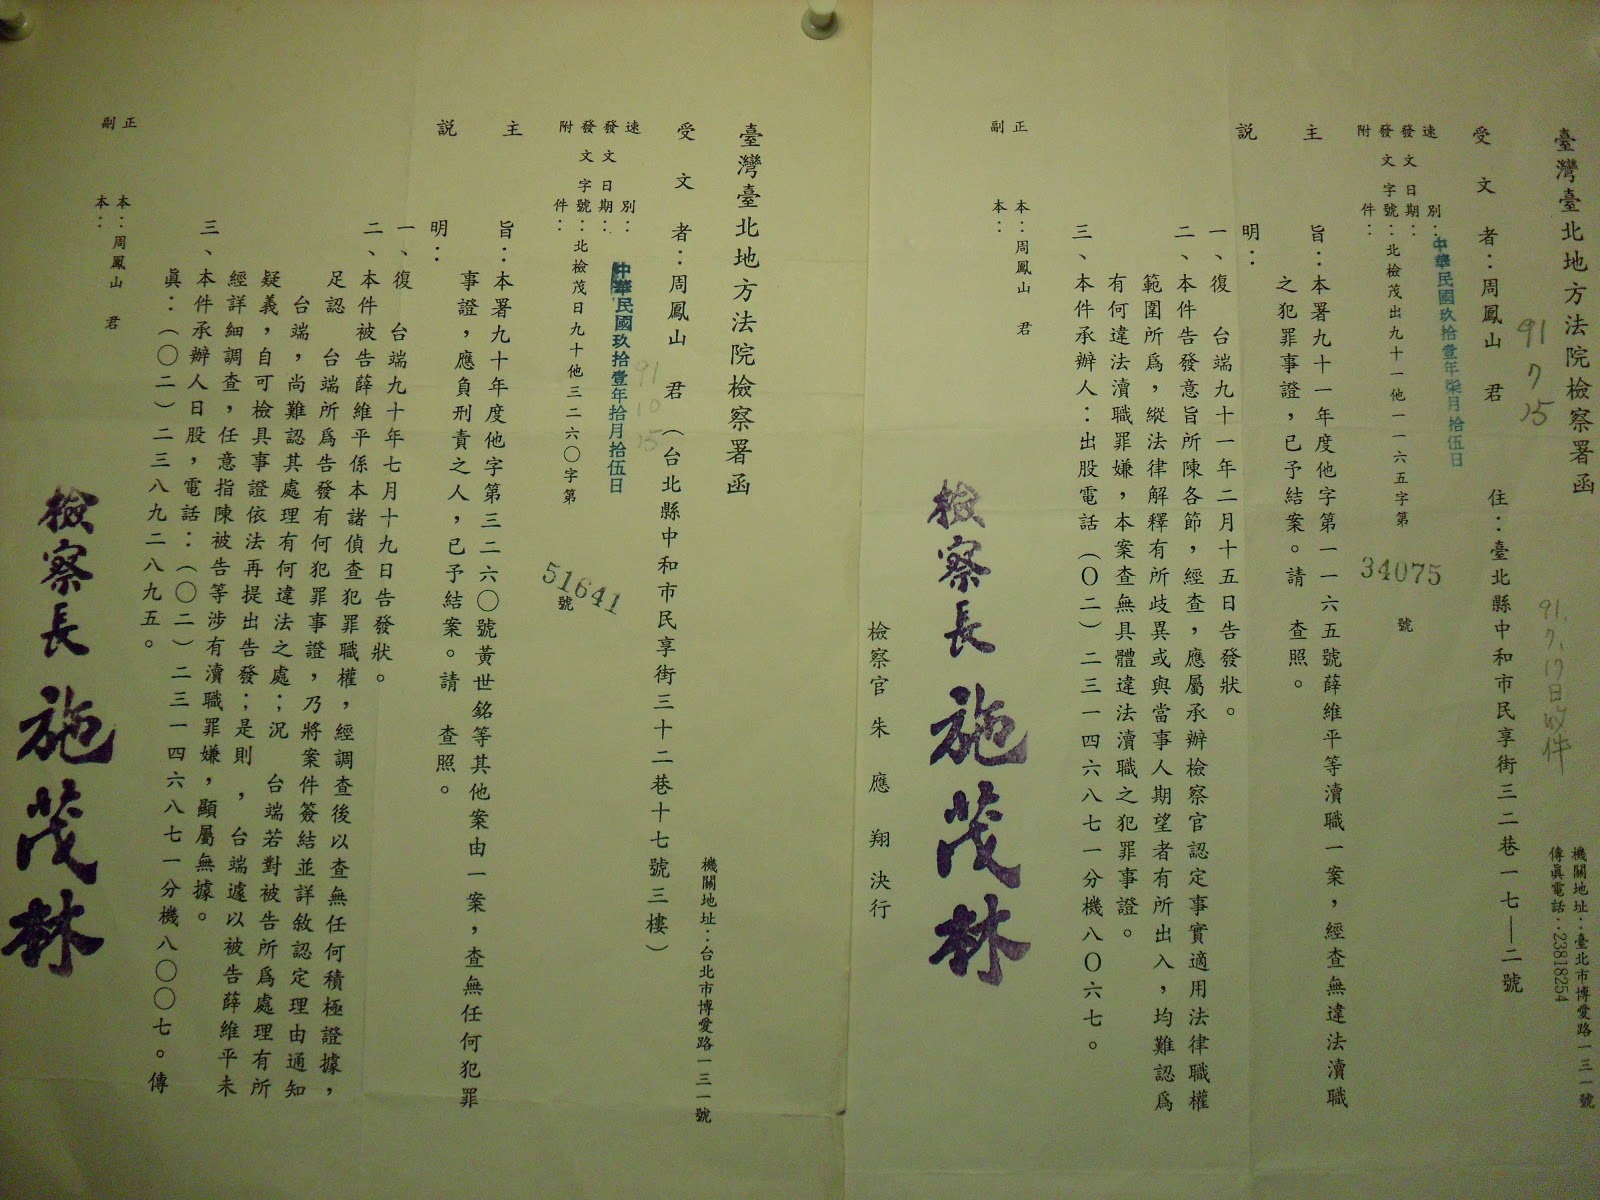 臺灣臺北地方法院檢察署函
機關地址：臺北市博愛路一三一號
傳眞電話：23818254
91 7 15
91.7.17日收件
受文者：周鳳山　君　住：臺北縣中和市民享街三二巷一七—二號
速別：
發文日期：中華民國玖拾壹年柒月拾伍日
發文字號：北檢茂出九十一他一一六五字第34075號
附件：
主旨：本署九十一年度他字第一一六五號薛維平等瀆職一案，經查無違法瀆職
之犯罪事證，已予結案。請　查照。
說明：
一、復　台端九十一年二月十五日告發狀。
二、本件告發意旨所陳各節，經查，應屬承辦檢察官認定事實適用法律職權
範圍所爲，縱法律解釋有所歧異或與當事人期望者有所出入，均難認爲
有何違法瀆職罪嫌，本案查無具體違法瀆職之犯罪事證。
三、本件承辦人：出股電話（Ｏ二）二三一四六八七一分機八Ｏ六七。
正本：周鳳山　君
副本：
檢察長施茂林
檢察官朱應翔決行
臺灣臺北地方法院檢察署函
機關地址：台北市博愛路一三一號
受文者：周鳳山　君（台北縣中和市民享街三十二巷十七號三樓）
91 10 15
速別：
發文日期：中華民國玖拾壹年拾月拾伍日
發文字號：北檢茂日九十他三二六〇字第51641號
附件：
主旨：本署九十年度他字第三二六〇號黃世銘等其他案由一案，查無任何犯罪
事證，應負刑責之人，已予結案。請　查照。
說明：
一、復　台端九十年七月十九日告發狀。
二、本件被告薛維平係本諸偵查犯罪職權，經調查後以查無任何積極證據，
足認　台端所爲告發有何犯罪事證，乃將案件簽結並詳敘認定理由通知
台端，尚難認其處理有何違法之處；況　台端若對被告所爲處理有所
疑義，自可檢具事證依法再提出告發；是則，台端遽以被告薛維平未
經詳細調查，任意指陳被告等涉有瀆職罪嫌，顯屬無據。
三、本件承辦人日股，電話：（〇二）二三一四六八七一分機八〇〇七。傳
眞：（〇二）二三八九二八九五。
正本：周鳳山　君
副本：
檢察長施茂林